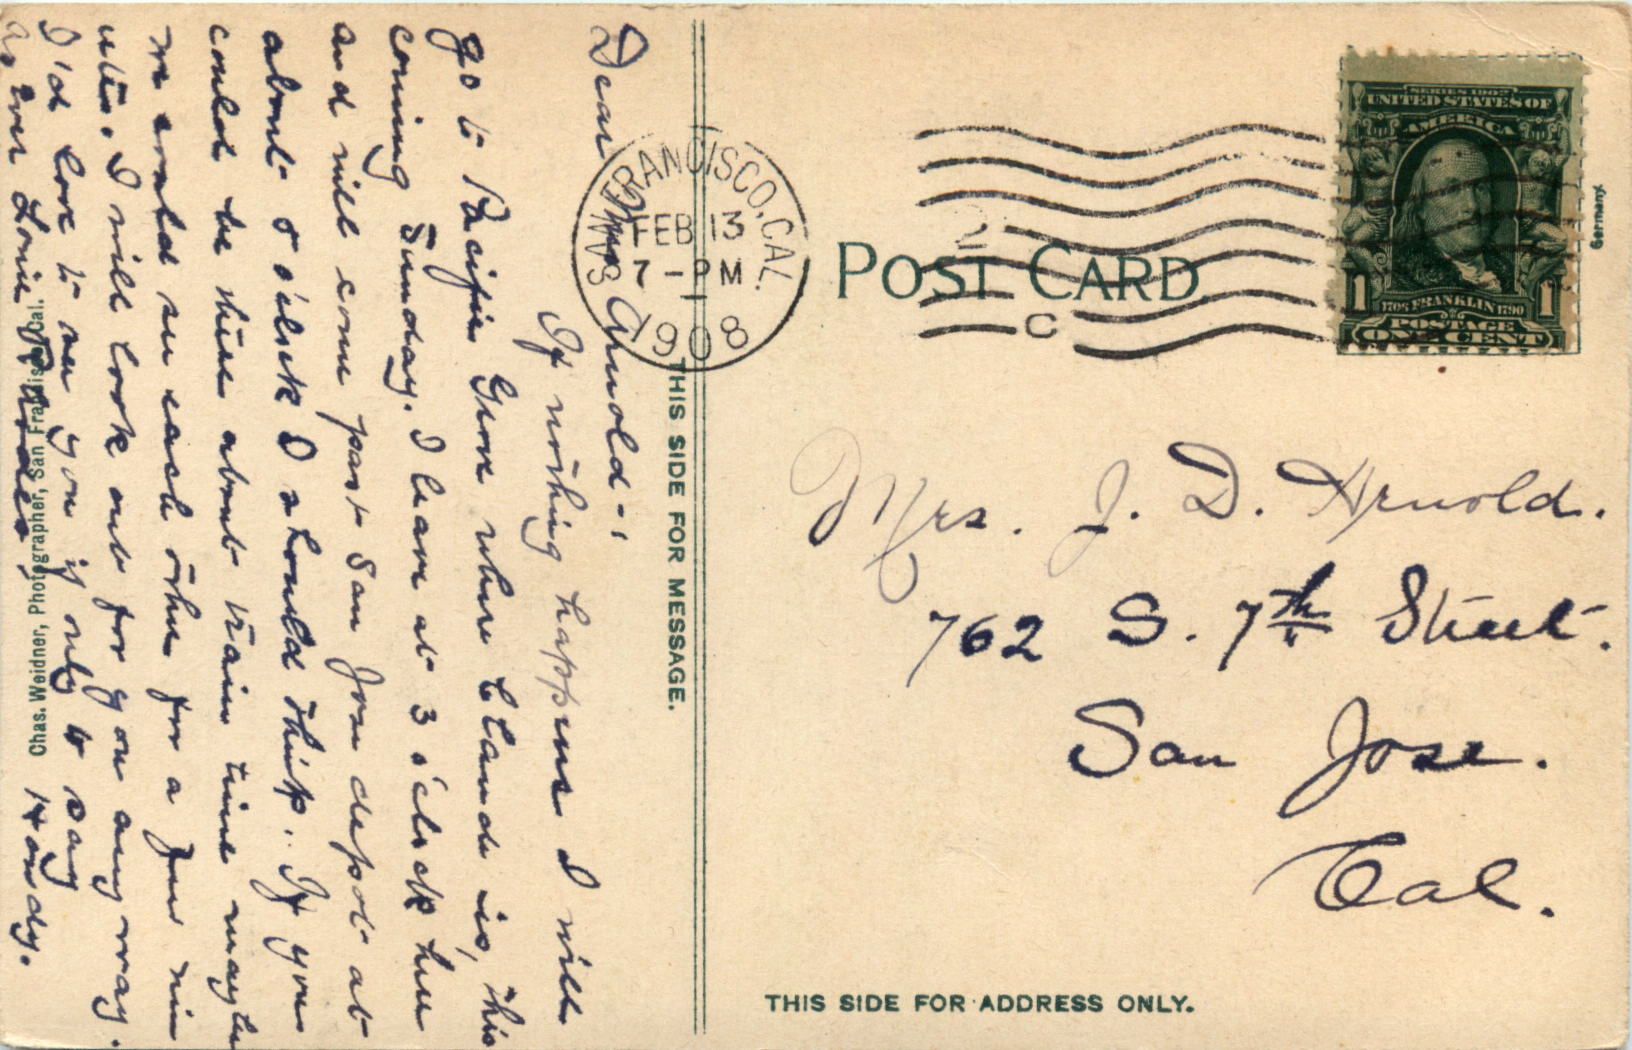 Dear Mrs Arnold-,
If nothing happens I will
go to Pacific Grove where Claude is, this
coming Sunday. I leave at 3 o'clock here
and will come past San Jose depot at
about 5 o'clock I should think. If you
could be there about train time maybe
we could see each other for a few min
utes. I will look out for you any way.
I'd love to see you if only to say Howdy.
as Ever Louie
Chas. Weidner, Photographer, San Francisco, Cal.
THIS SIDE FOR MESSAGE.
FRANCISCO, CAL.
FEB 13
7 - PM
1908
POST CARD
SERIES 1902
UNITED STATES OF
AMERICA
1 1
1706 FRANKLIN 1790
POSTAGE
ONE CENT
Germany
Mrs. J. D. Arnold.
762 S. 7th Street.
San Jose.
Cal.
THIS SIDE FOR ADDRESS ONLY.